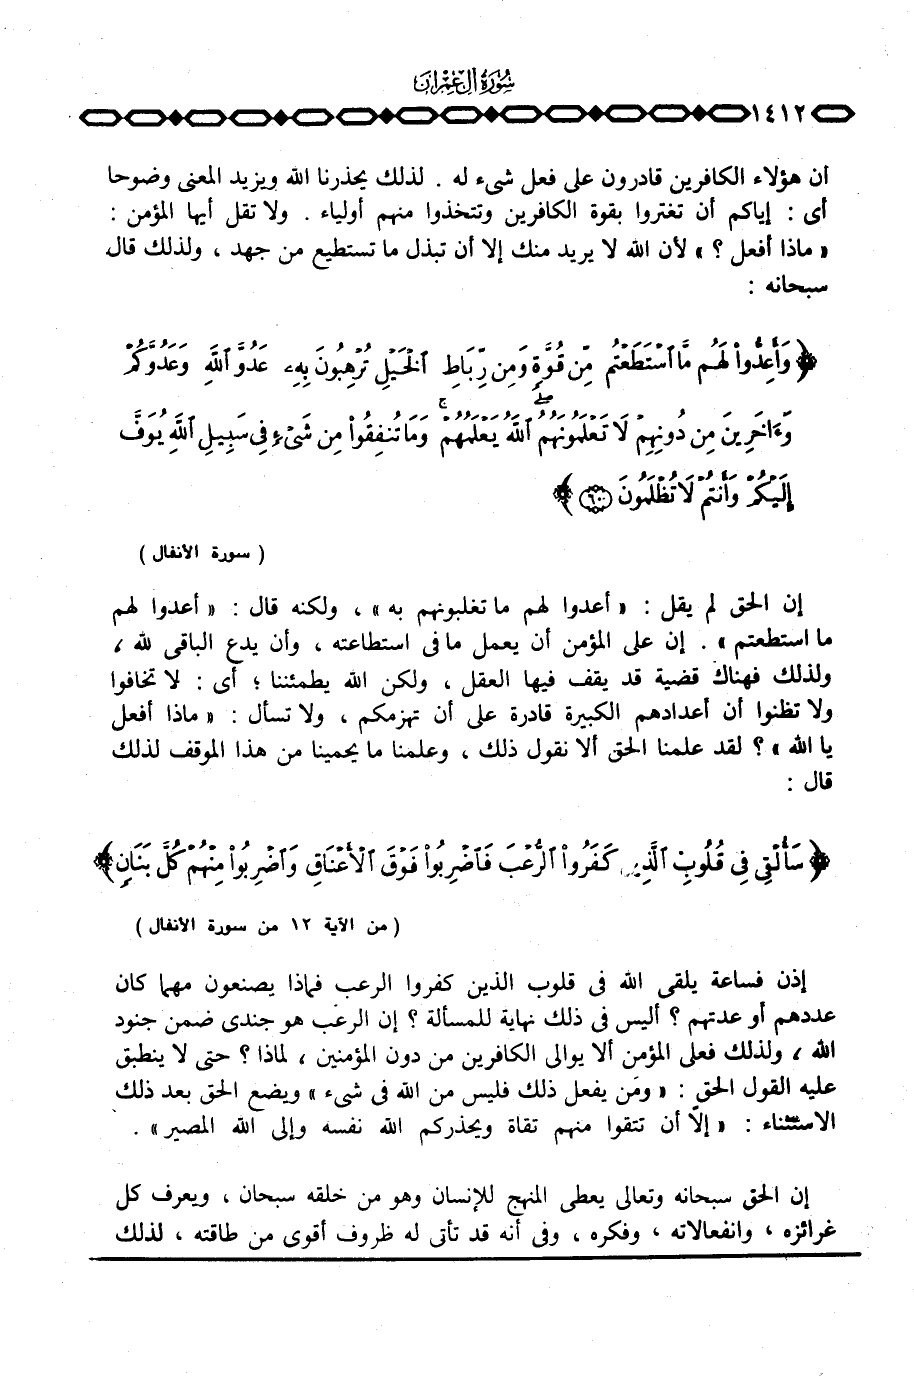 سورة آل عمران
١٤١٢
أن هؤلاء الكافرين قادرون على فعل شىء له . لذلك يحذرنا الله ويزيد المعنى وضوحا
أى : إياكم أن تغتروا بقوة الكافرين وتتخذوا منهم أولياء . ولا تقل أيها المؤمن :
« ماذا أفعل ؟ » لأن الله لا يريد منك إلا أن تبذل ما تستطيع من جهد ، ولذلك قال
سبحانه :
﴿ وَأَعِدُّواْ لَهُم مَّا ٱسْتَطَعْتُم مِّن قُوَّةٍ وَمِن رِّبَاطِ ٱلْخَيْلِ تُرْهِبُونَ بِهِۦ عَدُوَّ ٱللَّهِ وَعَدُوَّكُمْ
وَءَاخَرِينَ مِن دُونِهِمْ لَا تَعْلَمُونَهُمُ ٱللَّهُ يَعْلَمُهُمْ ۚ وَمَا تُنفِقُواْ مِن شَىْءٍ فِى سَبِيلِ ٱللَّهِ يُوَفَّ
إِلَيْكُمْ وَأَنتُمْ لَا تُظْلَمُونَ ٦٠ ﴾
( سورة الأنفال )
إن الحق لم يقل : « أعدوا لهم ما تغلبونهم به » ، ولكنه قال : « أعدوا لهم
ما استطعتم » . إن على المؤمن أن يعمل ما فى استطاعته ، وأن يدع الباقى لله ،
ولذلك فهناك قضية قد يقف فيها العقل ، ولكن الله يطمئننا ؛ أى : لا تخافوا
ولا تظنوا أن أعدادهم الكبيرة قادرة على أن تهزمكم ، ولا تسأل : « ماذا أفعل
يا الله » ؟ لقد علمنا الحق ألا نقول ذلك ، وعلمنا ما يحمينا من هذا الموقف لذلك
قال :
﴿ سَأُلْقِى فِى قُلُوبِ ٱلَّذِينَ كَفَرُواْ ٱلرُّعْبَ فَٱضْرِبُواْ فَوْقَ ٱلْأَعْنَاقِ وَٱضْرِبُواْ مِنْهُمْ كُلَّ بَنَانٍ ﴾
( من الآية ١٢ من سورة الأنفال )
إذن فساعة يلقى الله فى قلوب الذين كفروا الرعب فماذا يصنعون مهما كان
عددهم أو عدتهم ؟ أليس فى ذلك نهاية للمسألة ؟ إن الرعب هو جندى ضمن جنود
الله ، ولذلك فعلى المؤمن ألا يوالى الكافرين من دون المؤمنين ، لماذا ؟ حتى لا ينطبق
عليه القول الحق : « ومَن يفعل ذلك فليس من الله فى شىء » ويضع الحق بعد ذلك
الاستثناء : « إلاّ أن تتقوا منهم تقاة ويحذركم الله نفسه وإلى الله المصير » .
إن الحق سبحانه وتعالى يعطى المنهج للإنسان وهو من خلقه سبحان ، ويعرف كل
غرائزه ، وانفعالاته ، وفكره ، وفى أنه قد تأتى له ظروف أقوى من طاقته ، لذلك